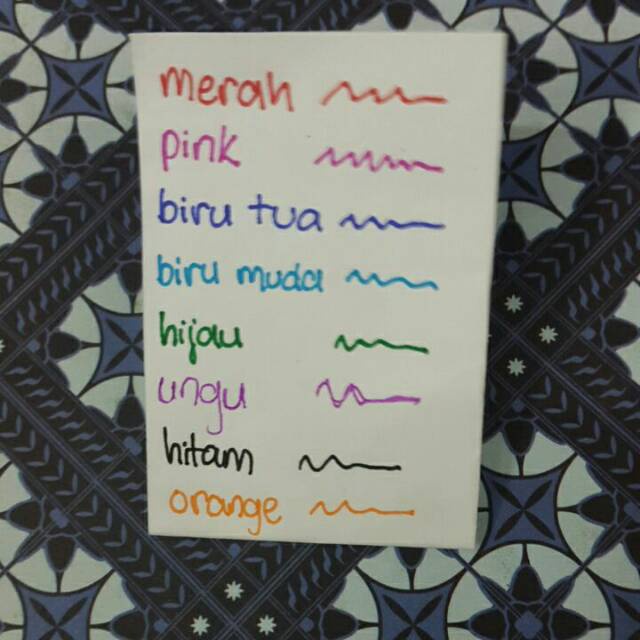 merah
pink
biru tua
biru muda
hijau
ungu
hitam
orange